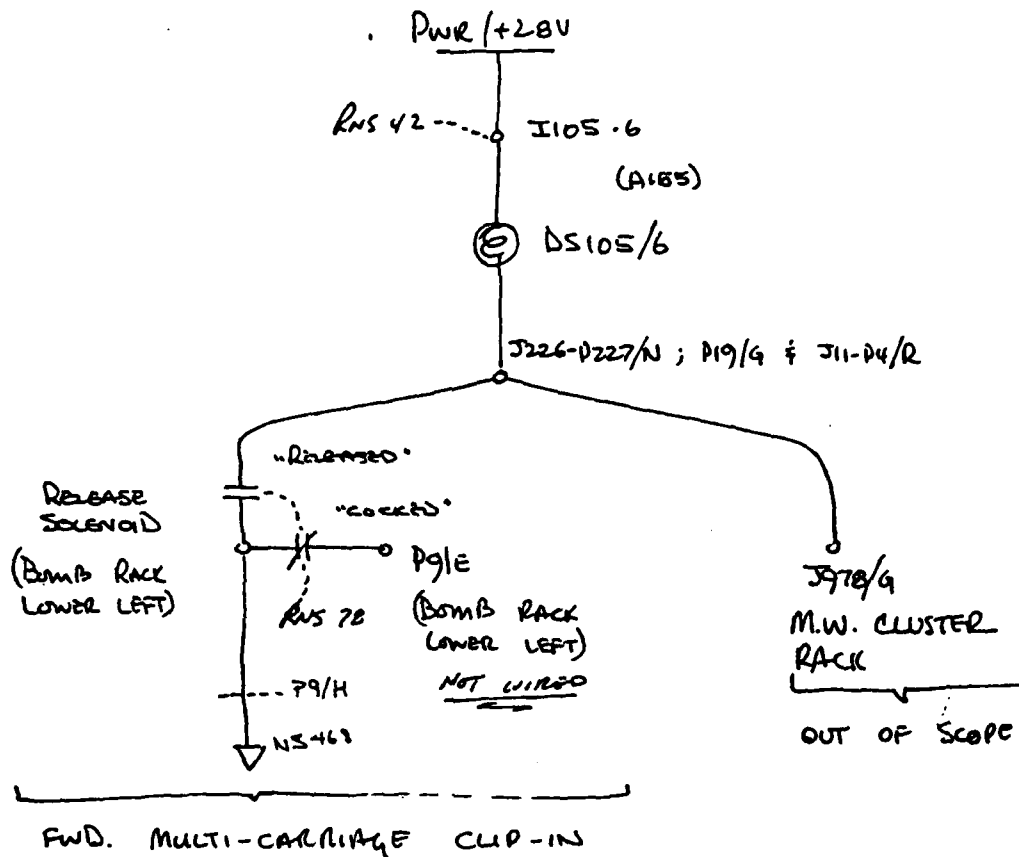 PWR/+28V
RNS 42
I105.6
(A1B5)
DS105/6
J226-P227/N ; P19/G & J11-P4/R
"RELEASED"
RELEASE
SOLENOID
(BOMB RACK
LOWER LEFT)
"COCKED"
P9/E
(BOMB RACK
LOWER LEFT)
NOT WIRED
RNS 78
P9/H
NS468
J978/G
M.W. CLUSTER
RACK
OUT OF SCOPE
FWD. MULTI-CARRIAGE CLIP-IN